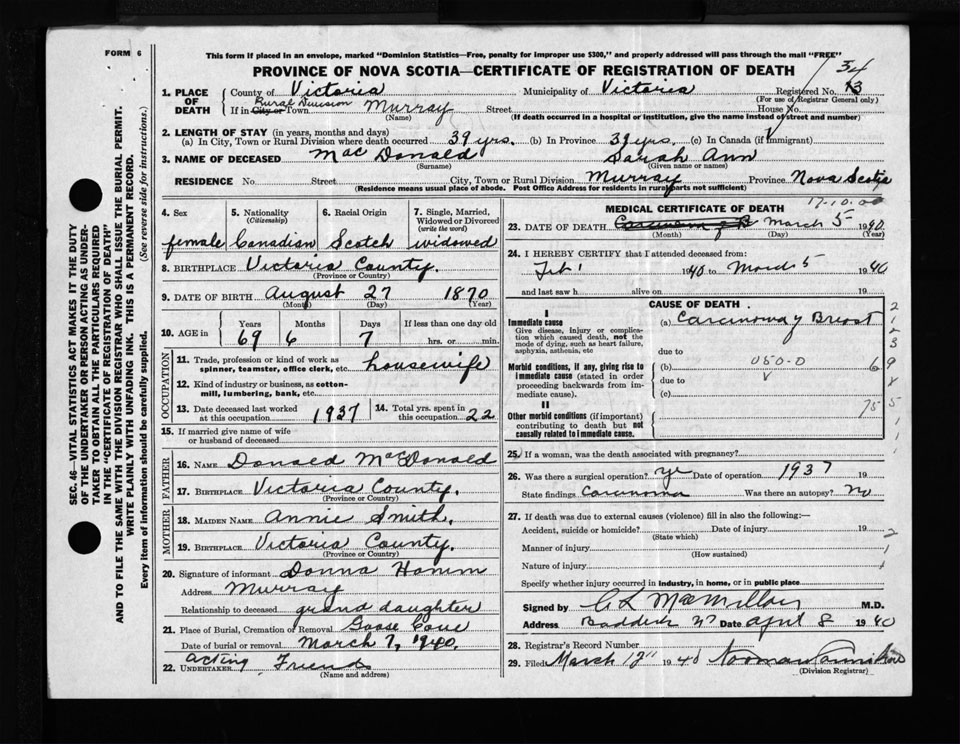 FORM 6
This form if placed in an envelope, marked "Dominion Statistics—Free, penalty for improper use $300," and properly addressed will pass through the mail "FREE"
PROVINCE OF NOVA SCOTIA—CERTIFICATE OF REGISTRATION OF DEATH
34
1. PLACE OF DEATH County of Victoria Municipality of Victoria Registered No. 13
(For use of Registrar General only)
Rural Division
If in City or Town Murray Street House No.
(Name) (If death occurred in a hospital or institution, give the name instead of street and number)
2. LENGTH OF STAY (in years, months and days)
(a) In City, Town or Rural Division where death occurred 39 yrs. (b) In Province 39 yrs. (c) In Canada (if immigrant)
3. NAME OF DECEASED MacDonald Sarah Ann
(Surname) (Given name or names)
RESIDENCE No. Street City, Town or Rural Division Murray Province Nova Scotia
(Residence means usual place of abode. Post Office Address for residents in rural parts not sufficient)
4. Sex 5. Nationality (Citizenship) 6. Racial Origin 7. Single, Married, Widowed or Divorced (write the word)
female Canadian Scotch widowed
8. BIRTHPLACE Victoria County.
(Province or County)
9. DATE OF BIRTH August 27 1870
(Month) (Day) (Year)
10. AGE in Years Months Days If less than one day old
69 6 7 hrs. or min.
OCCUPATION
11. Trade, profession or kind of work as spinner, teamster, office clerk, etc. housewife
12. Kind of industry or business, as cotton-mill, lumbering, bank, etc.
13. Date deceased last worked at this occupation 1937 14. Total yrs. spent in this occupation 22
15. If married give name of wife or husband of deceased
FATHER
16. NAME Donald MacDonald
17. BIRTHPLACE Victoria County.
(Province or County)
MOTHER
18. MAIDEN NAME Annie Smith.
19. BIRTHPLACE Victoria County.
(Province or County)
20. Signature of informant Donna Hamm
Address Murray
Relationship to deceased grand daughter
21. Place of Burial, Cremation or Removal Goose Cove
Date of burial or removal March 7, 1940.
22. Acting UNDERTAKER Friends
(Name and address)
17-10-00
MEDICAL CERTIFICATE OF DEATH
23. DATE OF DEATH March 5 1940
(Month) (Day) (Year)
24. I HEREBY CERTIFY that I attended deceased from:
Feb 1 1940 to March 5 1940
and last saw h alive on 19
CAUSE OF DEATH
I
Immediate cause (a) Carcinoma of Breast
Give disease, injury or complication which caused death, not the mode of dying, such as heart failure, asphyxia, asthenia, etc
due to
Morbid conditions, if any, giving rise to immediate cause (stated in order proceeding backwards from immediate cause).
(b) 050-0
due to
(c)
II
Other morbid conditions (if important) contributing to death but not causally related to immediate cause.
25. If a woman, was the death associated with pregnancy?
26. Was there a surgical operation? yes Date of operation 1937 19
State findings Carcinoma Was there an autopsy? No
27. If death was due to external causes (violence) fill in also the following:—
Accident, suicide or homicide? Date of injury 19
(State which)
Manner of injury
(How sustained)
Nature of injury
Specify whether injury occurred in industry, in home, or in public place
Signed by C L MacMillan M.D.
Address Baddeck Date April 8 1940
28. Registrar's Record Number
29. Filed March 12" 1940 Norman
(Division Registrar)
SEC. 46—VITAL STATISTICS ACT MAKES IT THE DUTY
OF THE UNDERTAKER OR PERSON ACTING AS UNDER-
TAKER TO OBTAIN ALL THE PARTICULARS REQUIRED
IN THE "CERTIFICATE OF REGISTRATION OF DEATH"
AND TO FILE THE SAME WITH THE DIVISION REGISTRAR WHO SHALL ISSUE THE BURIAL PERMIT.
WRITE PLAINLY WITH UNFADING INK. THIS IS A PERMANENT RECORD.
Every item of information should be carefully supplied. (See reverse side for instructions.)